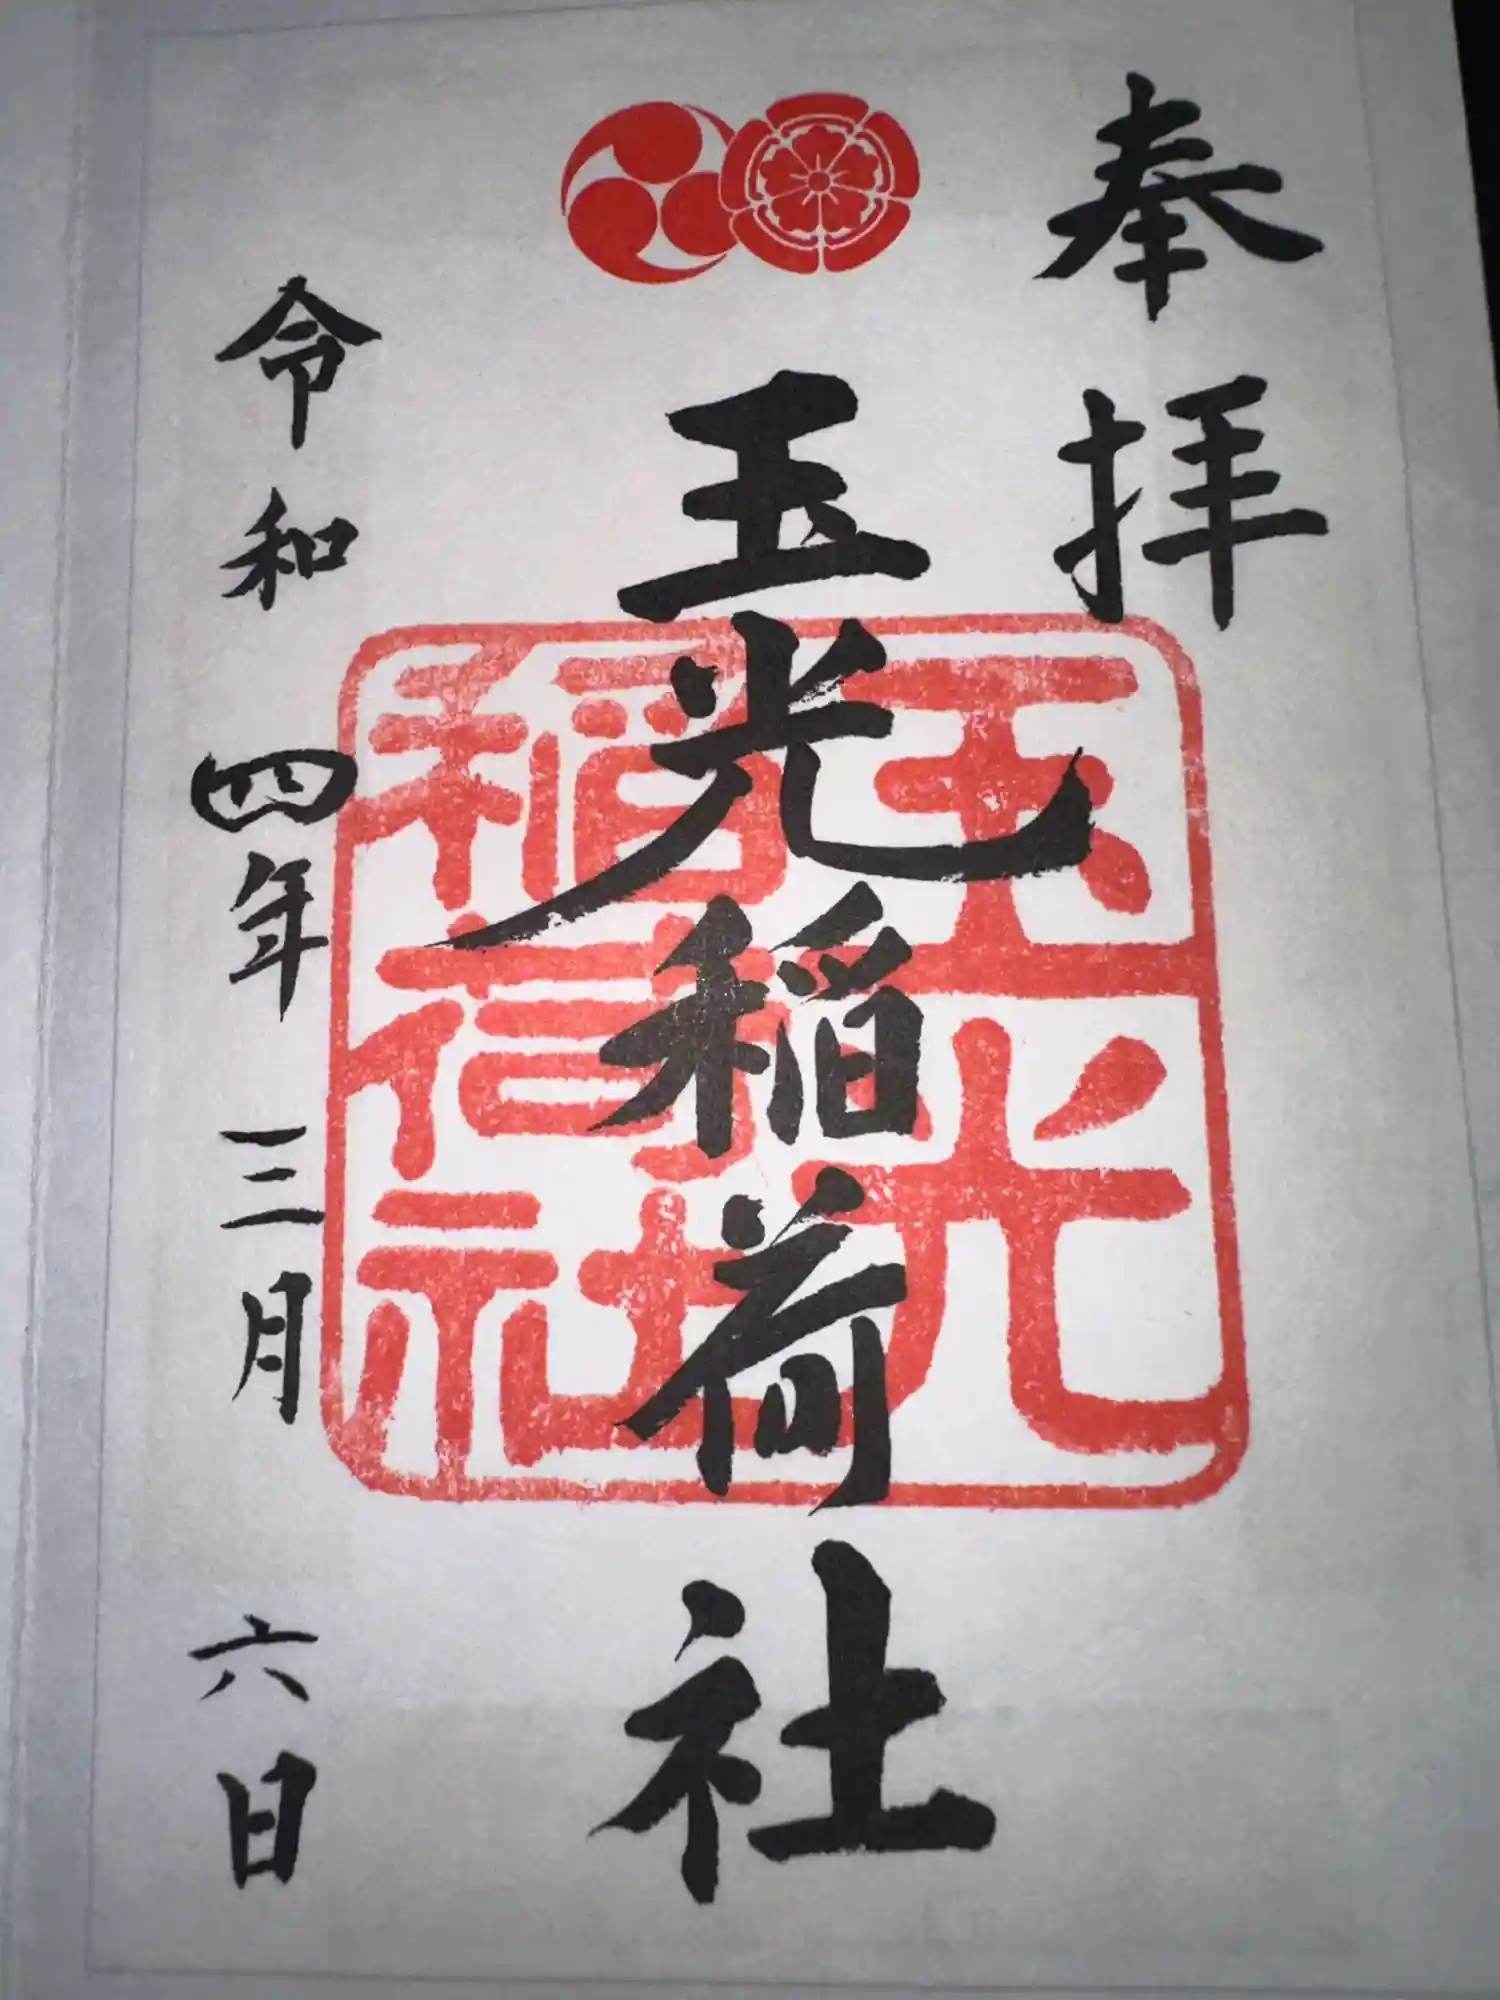 奉拝
玉光稲荷社
玉光
稲荷社
令和四年三月六日